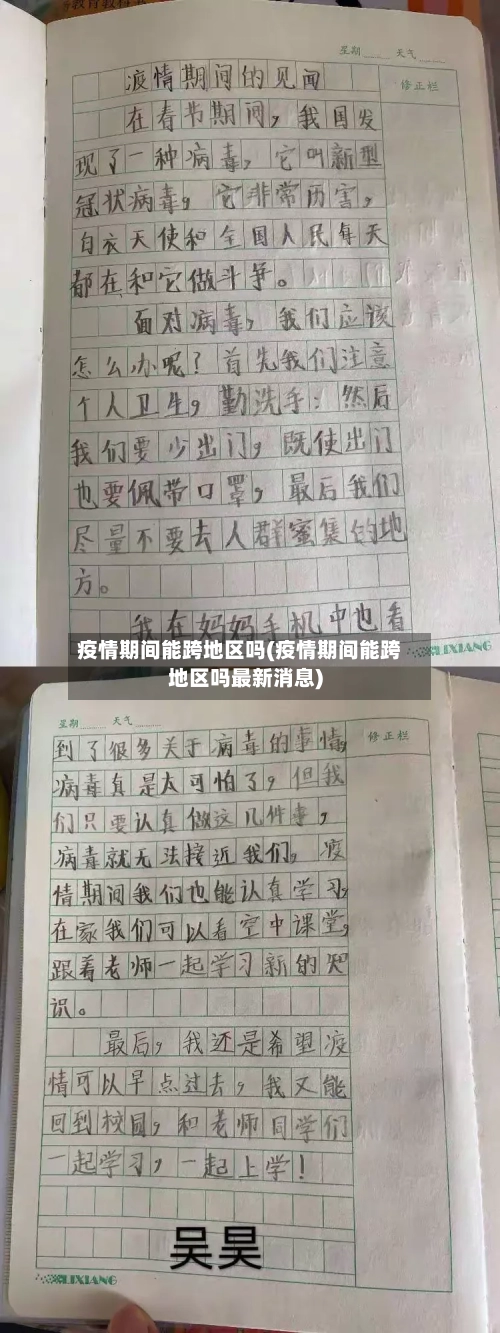 星期 天气
修正栏
疫情期间的见闻
在春节期间，我国发
现了一种病毒，它叫新型
冠状病毒，它非常历害，
白衣天使和全国人民每天
都在和它做斗争。
面对病毒，我们应该
怎么办呢？首先我们注意
个人卫生，勤洗手；然后
我们要少出门，既使出门
也要佩带口罩，最后我们
尽量不要去人群蜜集的地
方。
我在妈妈手机中也看
LIXIANG
疫情期间能跨地区吗(疫情期间能跨
地区吗最新消息)
星期 天气
修正栏
到了很多关于病毒的事情，
病毒真是太可怕了，但我
们只要认真做这几件事，
病毒就无法接近我们，疫
情期间我们也能认真学习，
在家我们可以看空中课堂，
跟着老师一起学习新的知
识。
最后，我还是希望疫
情可以早点过去，我又能
回到校园，和老师同学们
一起学习，一起上学！
吴昊
LIXIANG